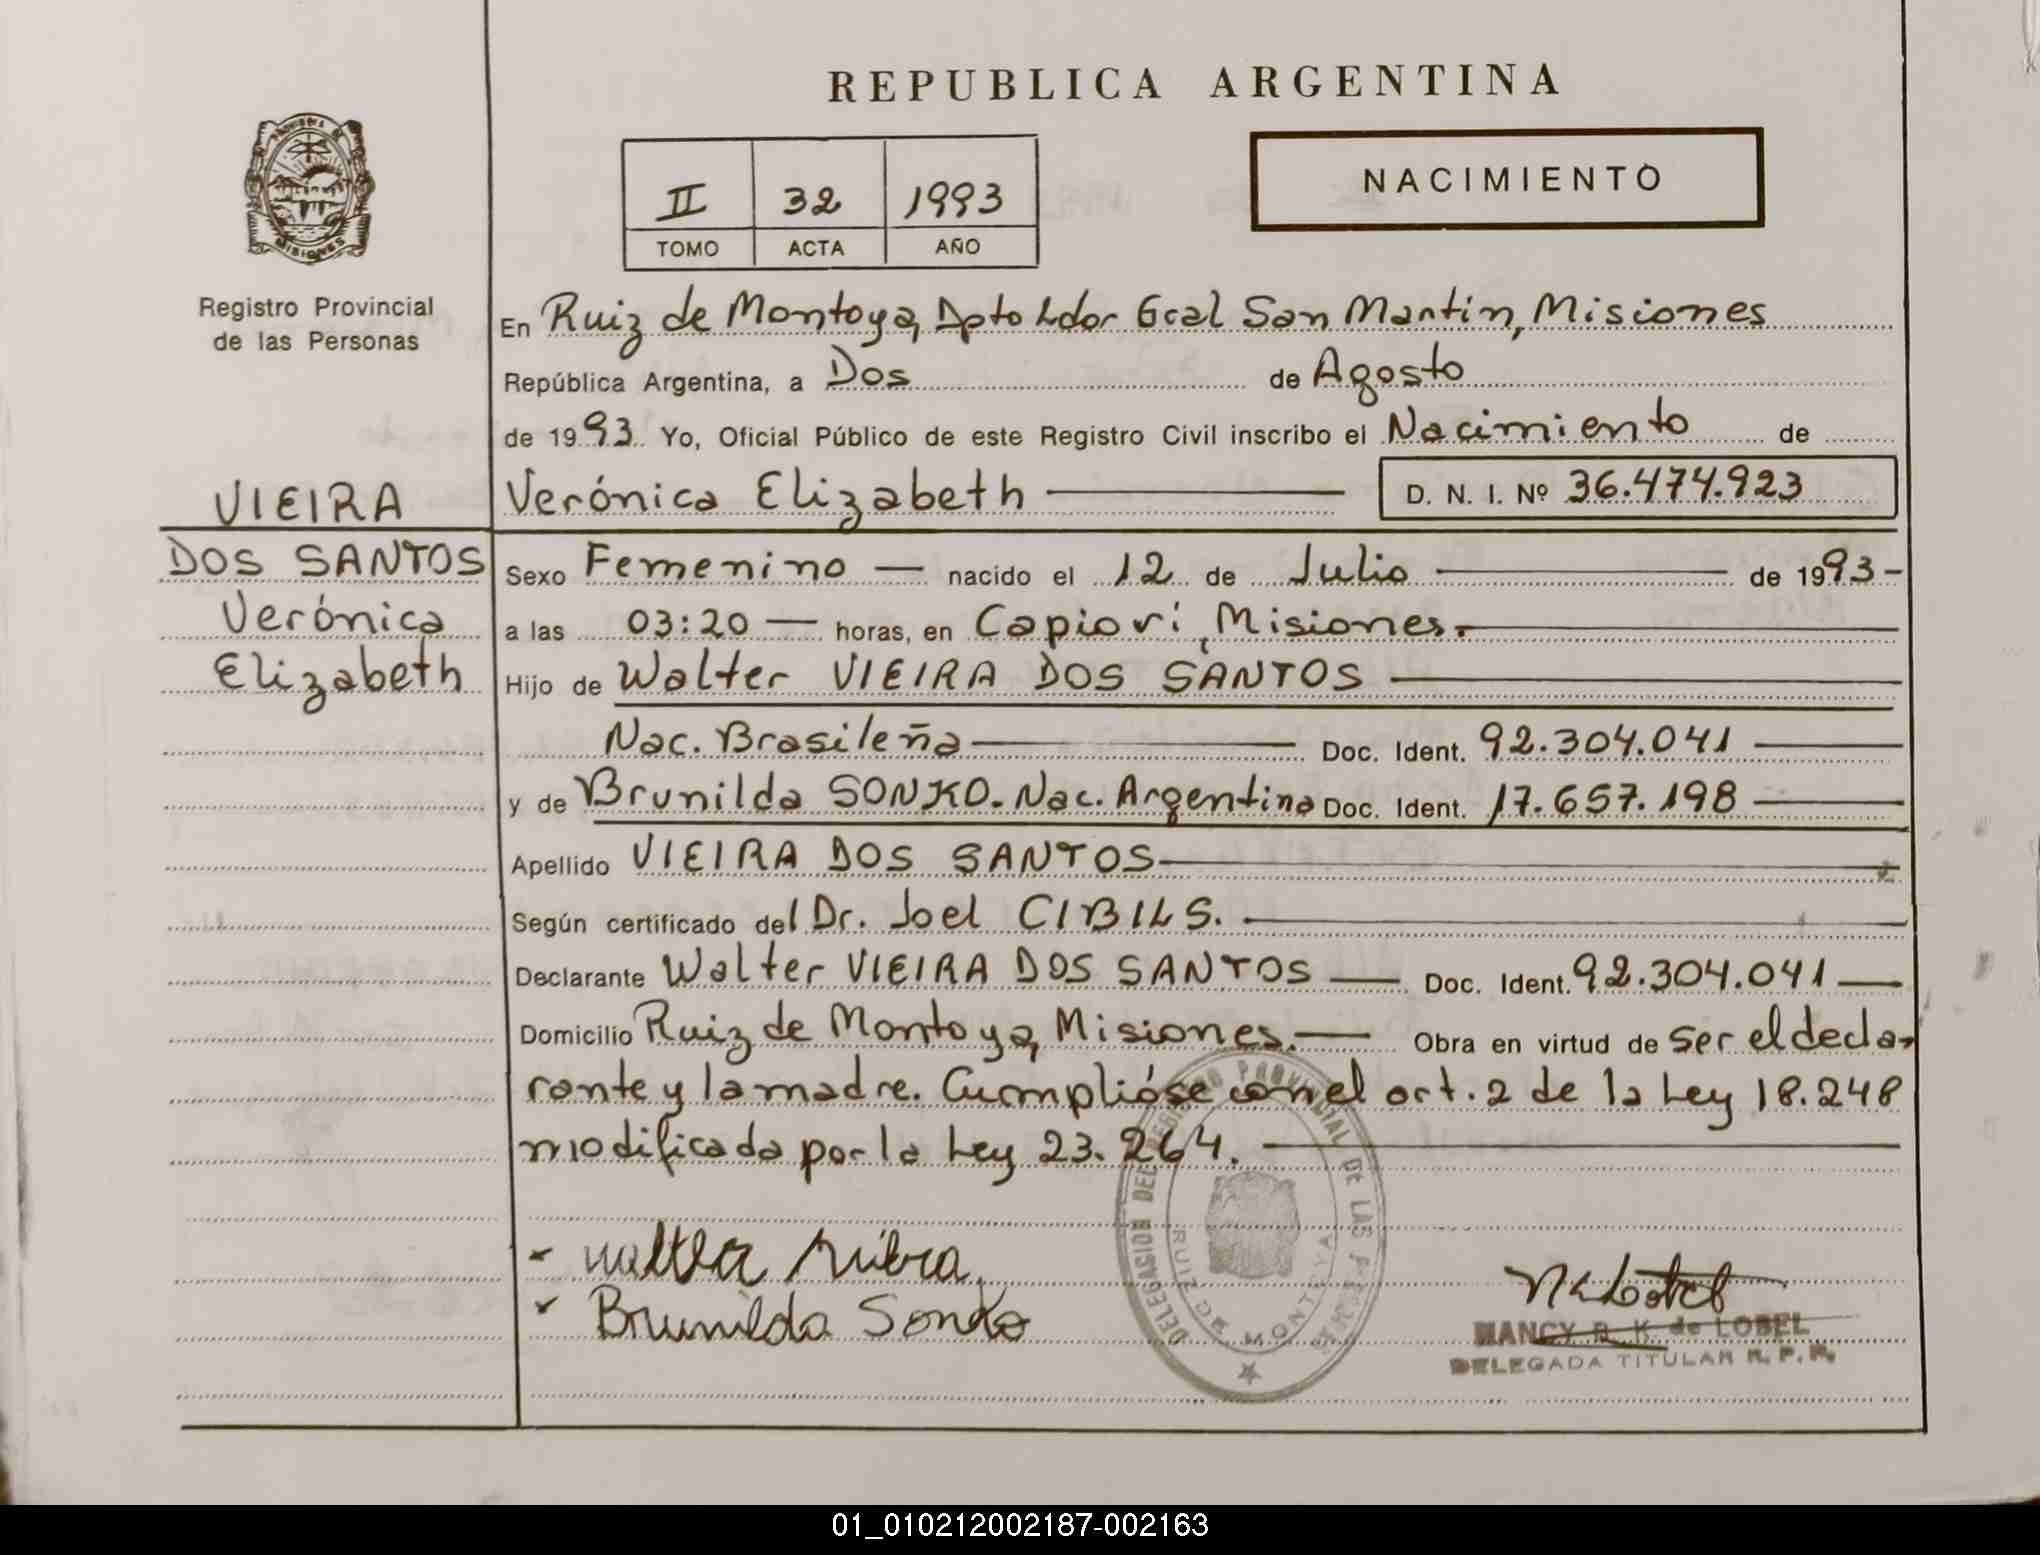 REPUBLICA ARGENTINA
NACIMIENTO
II 32 1993
TOMO ACTA AÑO
MISIONES
Registro Provincial
de las Personas
En Ruiz de Montoya, Dpto Ldor Gral San Martín, Misiones
República Argentina, a Dos de Agosto
de 1993 Yo, Oficial Público de este Registro Civil inscribo el Nacimiento de
Verónica Elizabeth D. N. I. Nº 36.474.923
VIEIRA
DOS SANTOS
Verónica
Elizabeth
Sexo Femenino nacido el 12 de Julio de 1993
a las 03:20 horas, en Capiovi, Misiones.
Hijo de Walter VIEIRA DOS SANTOS
Nac. Brasileña Doc. Ident. 92.304.041
y de Brunilda SONKO. Nac. Argentina Doc. Ident. 17.657.198
Apellido VIEIRA DOS SANTOS
Según certificado del Dr. Joel CIBILS.
Declarante Walter VIEIRA DOS SANTOS Doc. Ident. 92.304.041
Domicilio Ruiz de Montoya, Misiones. Obra en virtud de ser el decla-
rante y la madre. Cumplióse con el art. 2 de la Ley 18.248
modificada por la Ley 23.264.
DELEGACION DEL REGISTRO PROVINCIAL DE LAS
RUIZ DE MONTOYA
Brunilda Sonko
NANCY R. K. de LOBEL
DELEGADA TITULAR R. P. P.
01_010212002187-002163